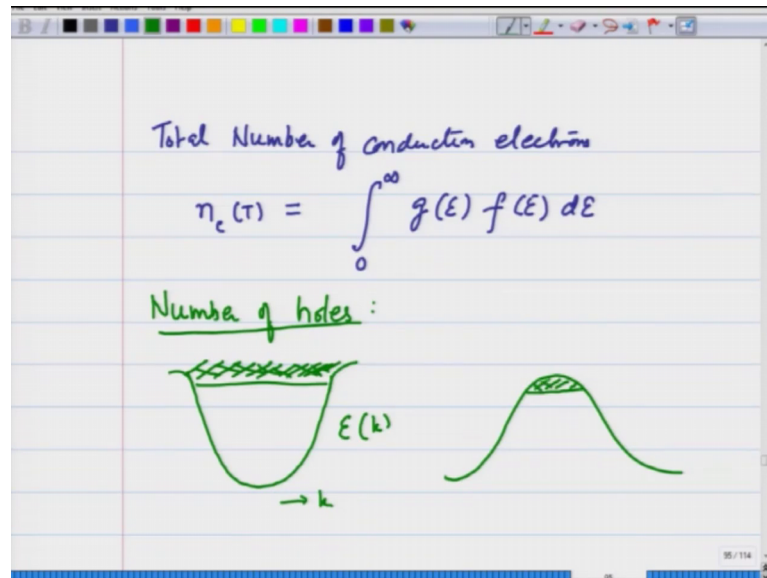 Total Number of conduction electrons
n_c (T) = ∫_0^∞ g(ε) f(ε) dε
Number of holes :
ε(k)
→ k
95 / 114